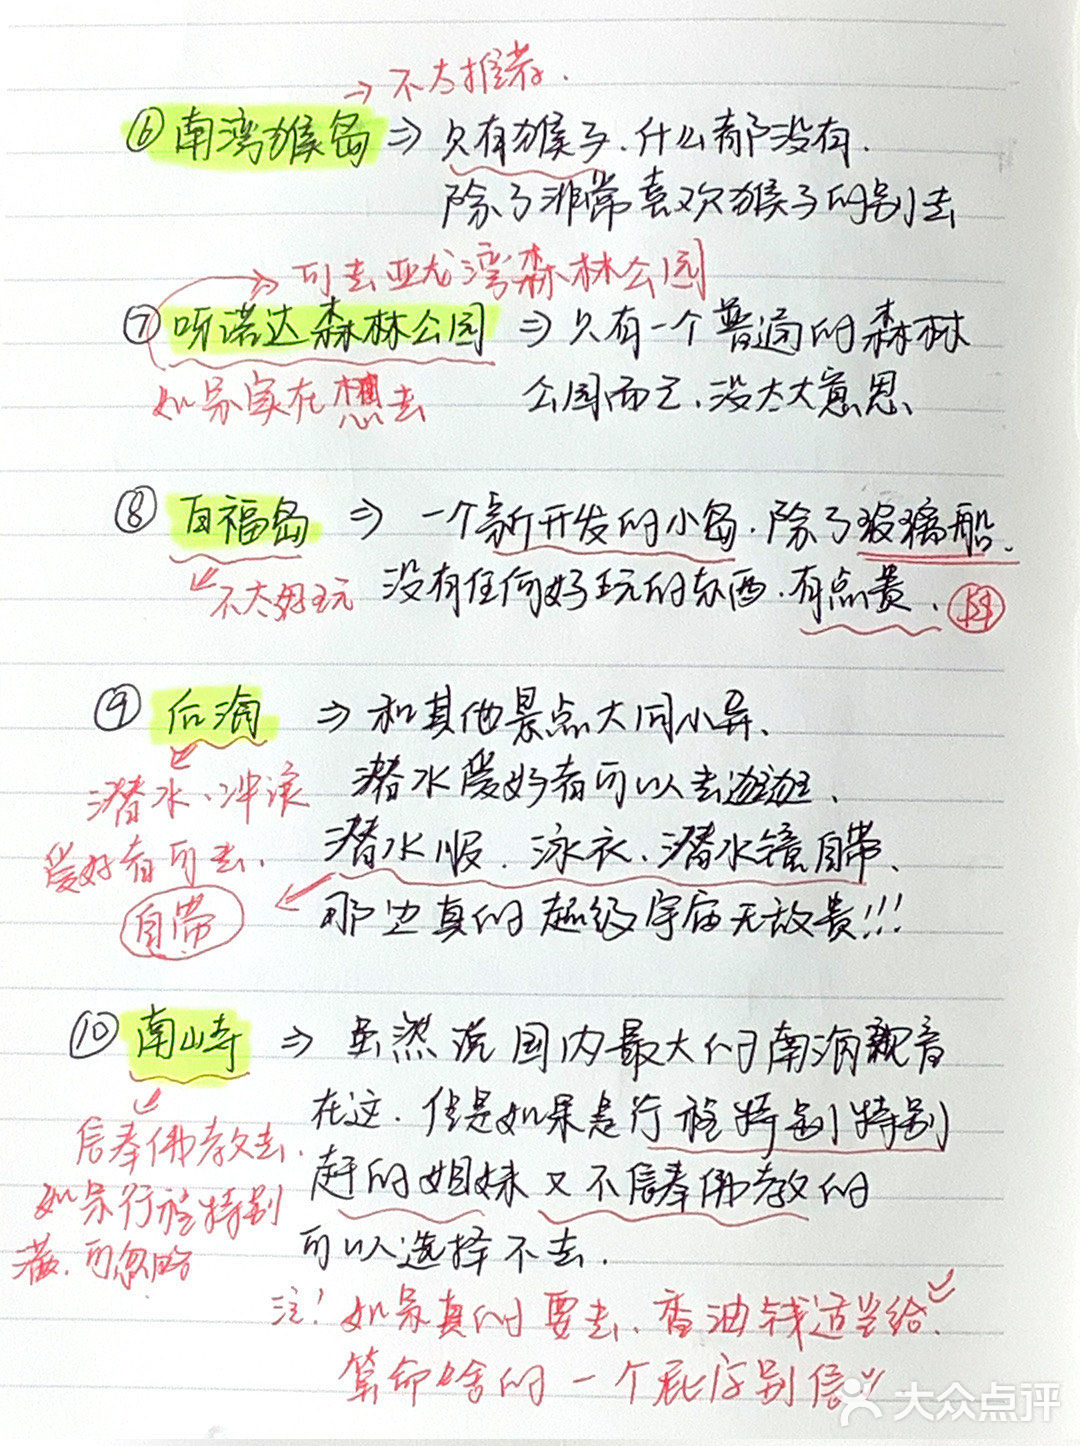 →不太推荐.
⑥南湾猴岛⇒只有猴子.什么都没有.
除了非常喜欢猴子的别去
→可去亚龙湾森林公园
⑦呀诺达森林公园⇒只有一个普通的森林
如果实在想去 公园而已、没太大意思、
⑧百福岛⇒一个新开发的小岛.除了玻璃船.
不太好玩 没有任何好玩的东西.有点贵.
⑨后海⇒和其他景点大同小异、
潜水、冲浪 潜水爱好者可以去逛逛.
爱好者可去. 潜水服.泳衣、潜水镜自带、
自带 那边真的超级宇宙无敌贵!!!
⑩南山寺⇒虽然说国内最大的南海观音
在这.但是如果是行程特别特别
信奉佛教去. 赶的姐妹又不信奉佛教的
如果行程特别 可以选择不去.
满.可忽略
注!如果真的要去.香油钱适当给.
算命啥的一个屁字别信
大众点评